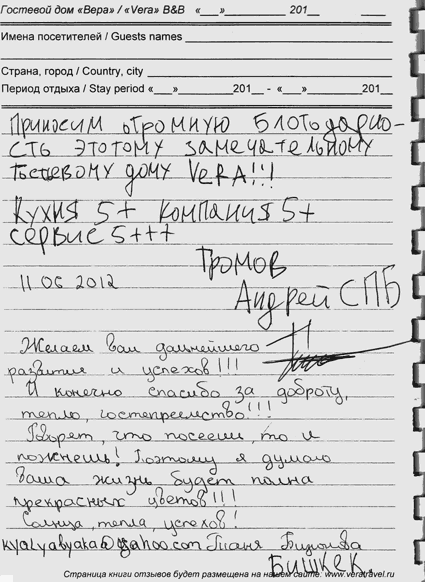 Гостевой дом «Вера» / «Vera» B&B «___»_________ 201__
Имена посетителей / Guests names
Страна, город / Country, city
Период отдыха / Stay period «___»_________201__ - «___»_________201__
Приносим огромную благодарно-
сть этотому замечательному
гостевому дому VeRA!!!
Кухня 5+ Компания 5+
сервис 5+++
Громов
11 06 2012
Андрей СПБ
Желаем вам дальнейшего
развития и успехов!!!
И конечно спасибо за доброту,
тепло, гостепреемство!!!
Говорят, что посееш, то и
пожнешь! Поэтому я думаю
Ваша жизнь будет полна
прекрасных цветов!!!
Солнца, тепла, успехов!
kyalyabyaka@yahoo.com Таня
Бишкек.
Страница книги отзывов будет размещена на нашем сайте: www.veratravel.ru